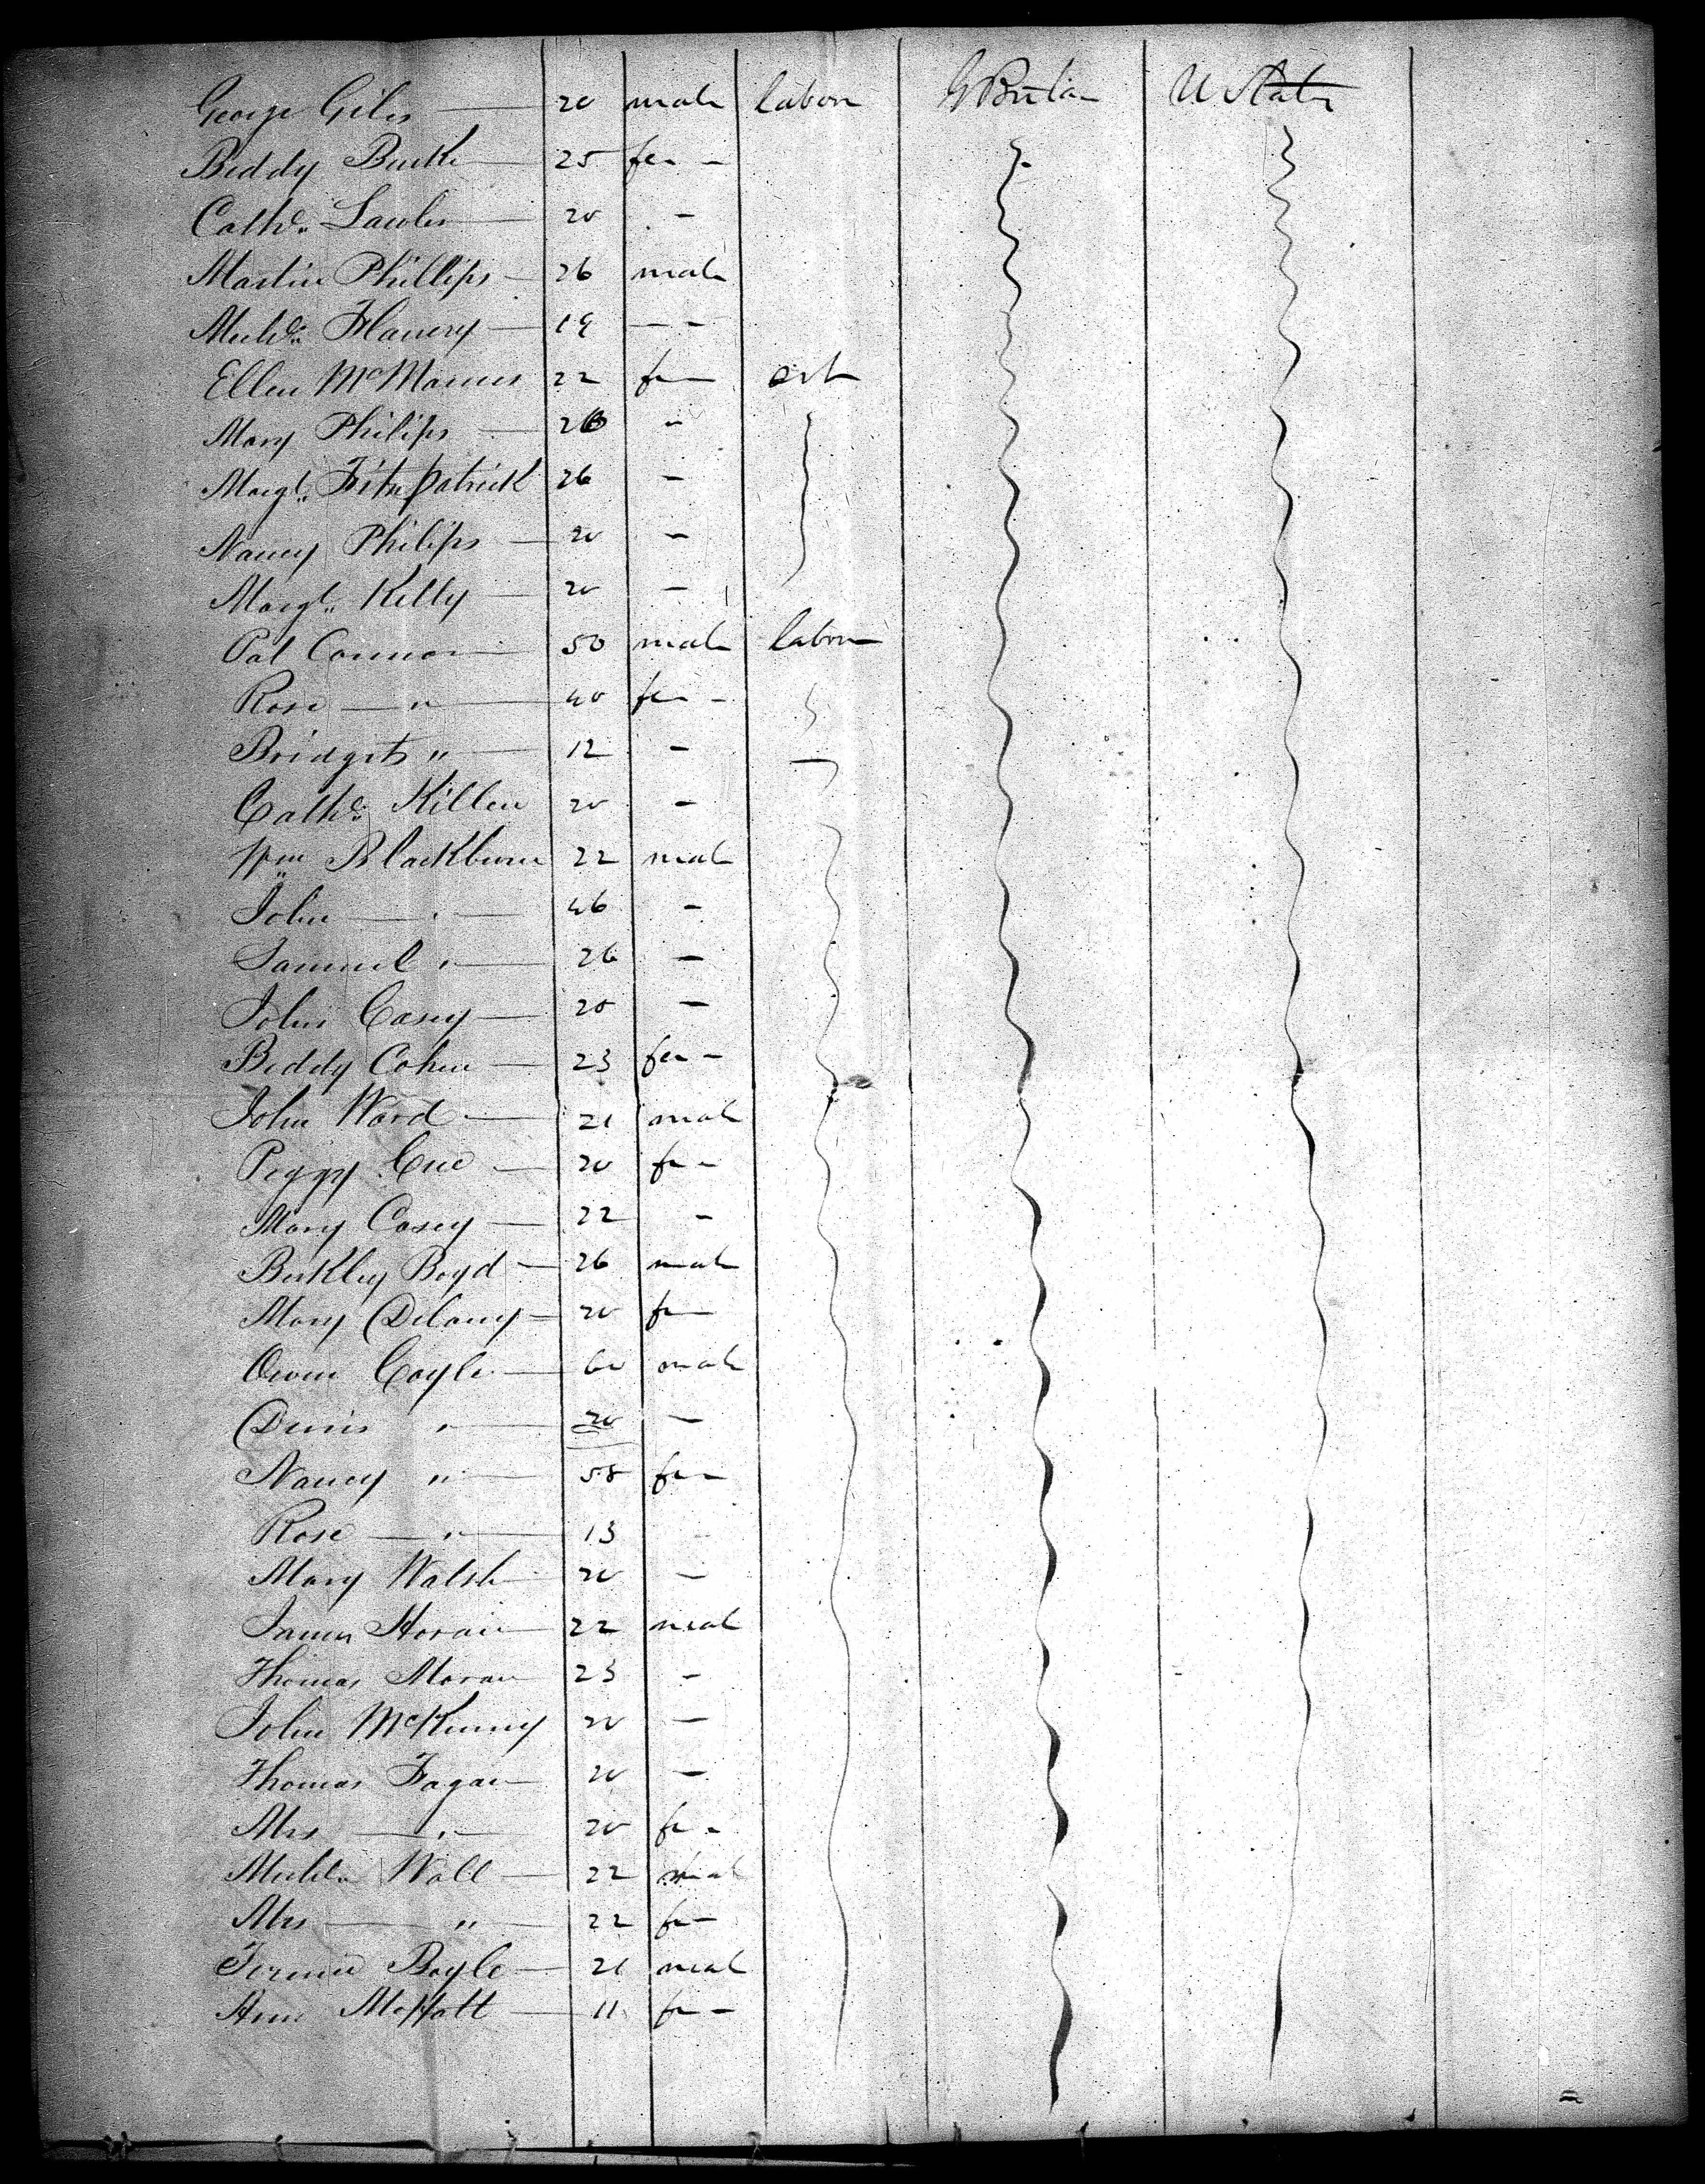 George Giles — 20 male labou G Britan U States
Biddy Burke — 25 fem -
Cathe. Lawler — 20 -
Martin Phillips — 26 male
Michl. Flanery — 19 - -
Ellen McManus 22 fem
Mary Philips — 26 -
Margt. Fitzpatrick 26 -
Nancy Philips — 20 -
Margt. Kelly — 20 -
Pat Connor — 50 male labou
Rose — " — 40 fem -
Bridget " — 12 -
Cathe. Killen 20 -
Wm Blackburn 22 male
John — " — 46 -
Samuel " — 26 -
John Casey — 20 -
Biddy Cohen — 23 fem -
John Ward — 21 male
Peggy — 20 fem
Mary Casey — 22 -
Berkley Boyd — 26 male
Mary Delany — 20 fem
Owen Coyle — 60 male
Denis " — 20 -
Nancy " — 58 fem
Rose — " — 13
Mary Walsh 20 -
James Horan — 22 male
Thomas Moran 23 -
John McKenny 20 -
Thomas Fagan 20 -
Mrs — " — 20 fem
Michl. Wall — 22 male
Mrs — " — 22 fem
Boyle — 21 male
Ann Moffatt — 11 fem